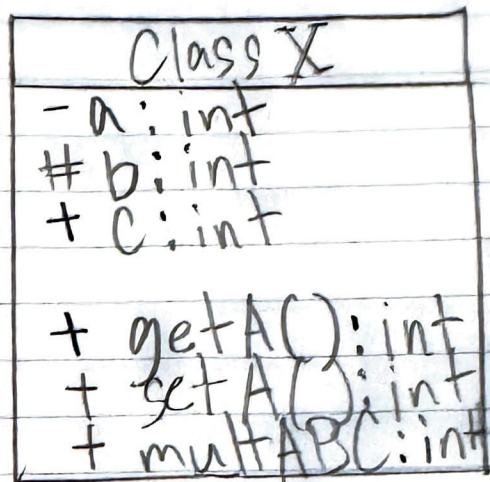 Class X
- a : int
# b : int
+ c : int
+ getA() : int
+ setA() : int
+ multABC : int